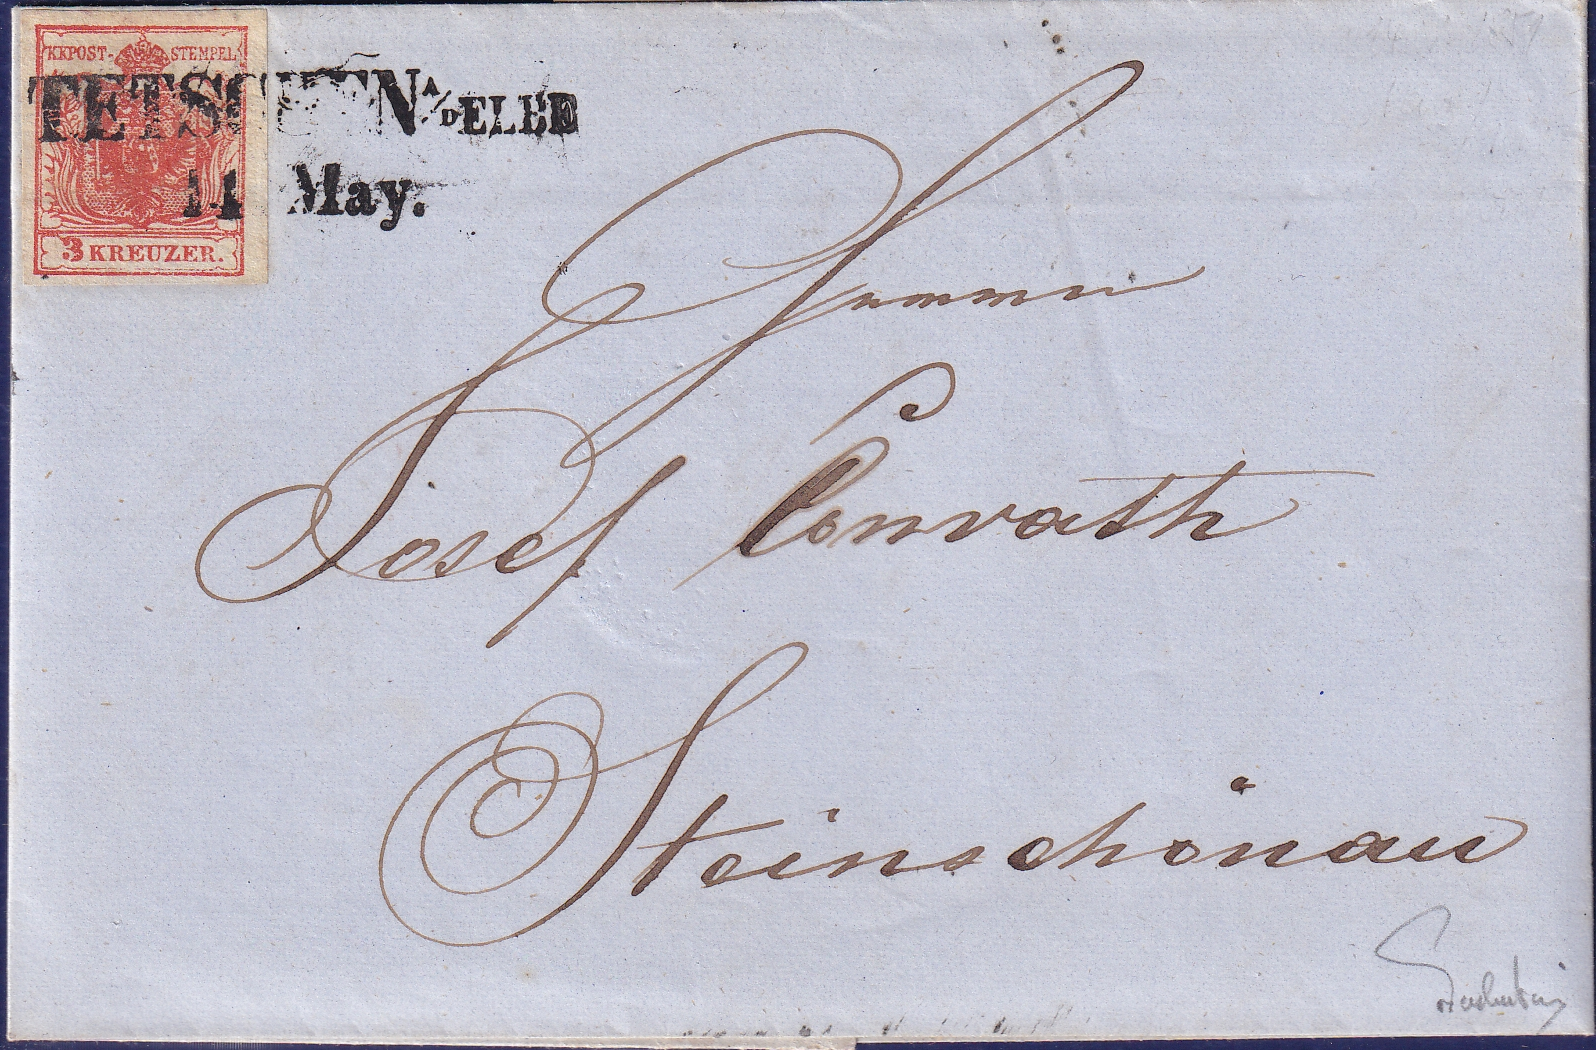 KKPOST-STEMPEL
TETSCHEN A/D ELBE
14 May.
3 KREUZER.
Josef Conrath
Steinschönau